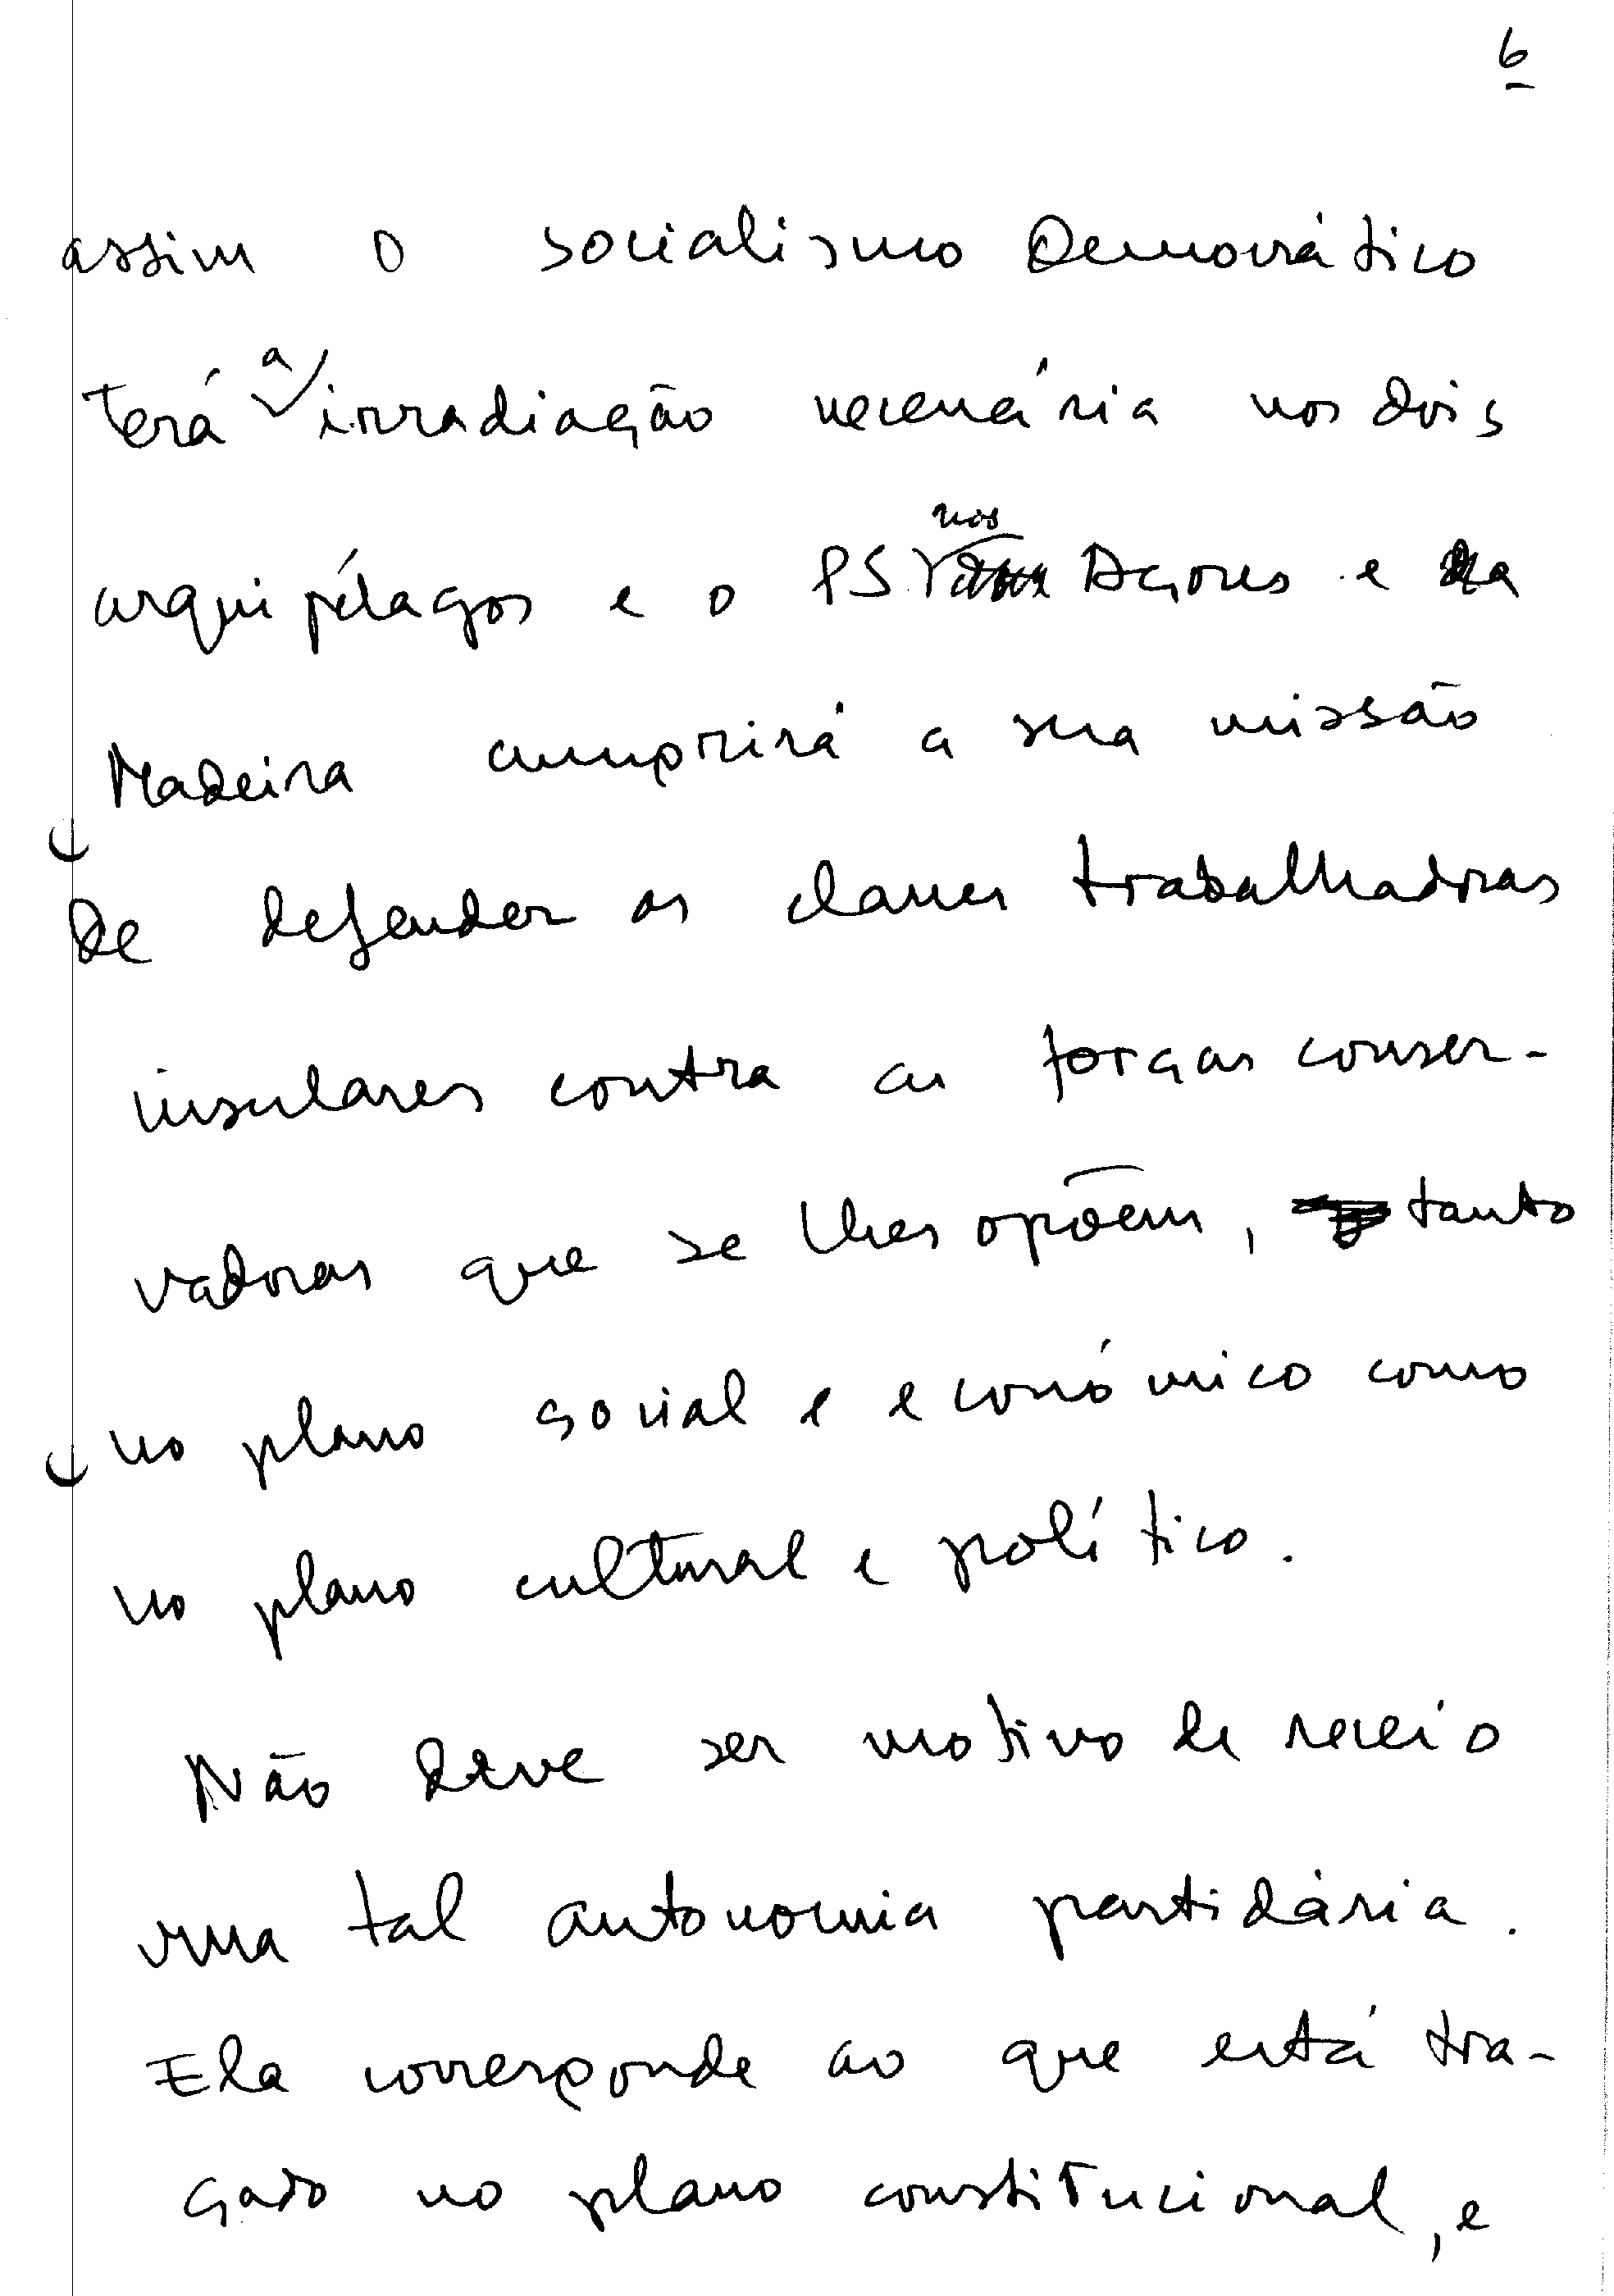 6
assim o socialismo Democrático
terá a irradiação necessária nos dois
arquipélagos e o PS nos Açores e na
Madeira cumprirá a sua missão
de defender as classes trabalhadoras
insulares contra as forças conser-
vadoras que se lhes opõem, tanto
no plano social e económico como
no plano cultural e político.
Não deve ser motivo de receio
uma tal autonomia partidária.
Ela corresponde ao que está tra-
çado no plano constitucional, e